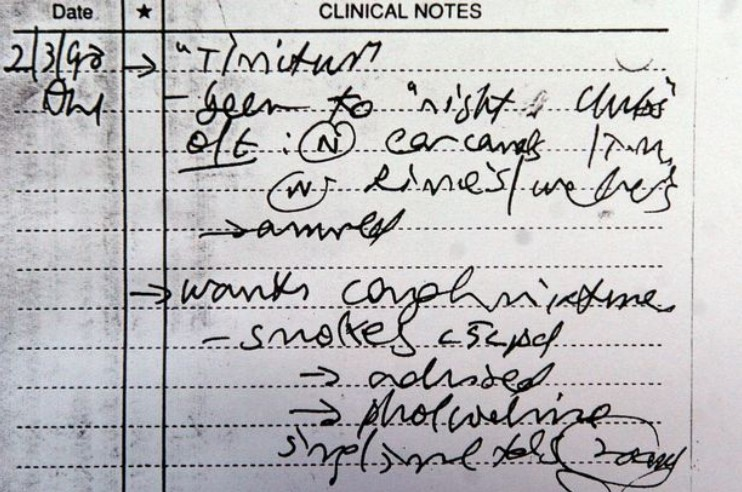 Date ★ CLINICAL NOTES
2/3/98 → "Tinitus"
- been to "night clubs"
O/E : (N) ear canals / T.M,
(N) Rinne's/Weber's
→ advised
→ wants cough mixture
- smokes <5cpd
→ advised
→ pholcodine